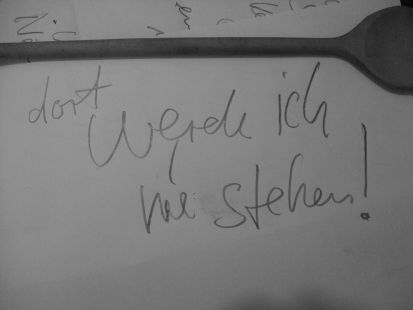 dort
Werde ich
nie stehen!